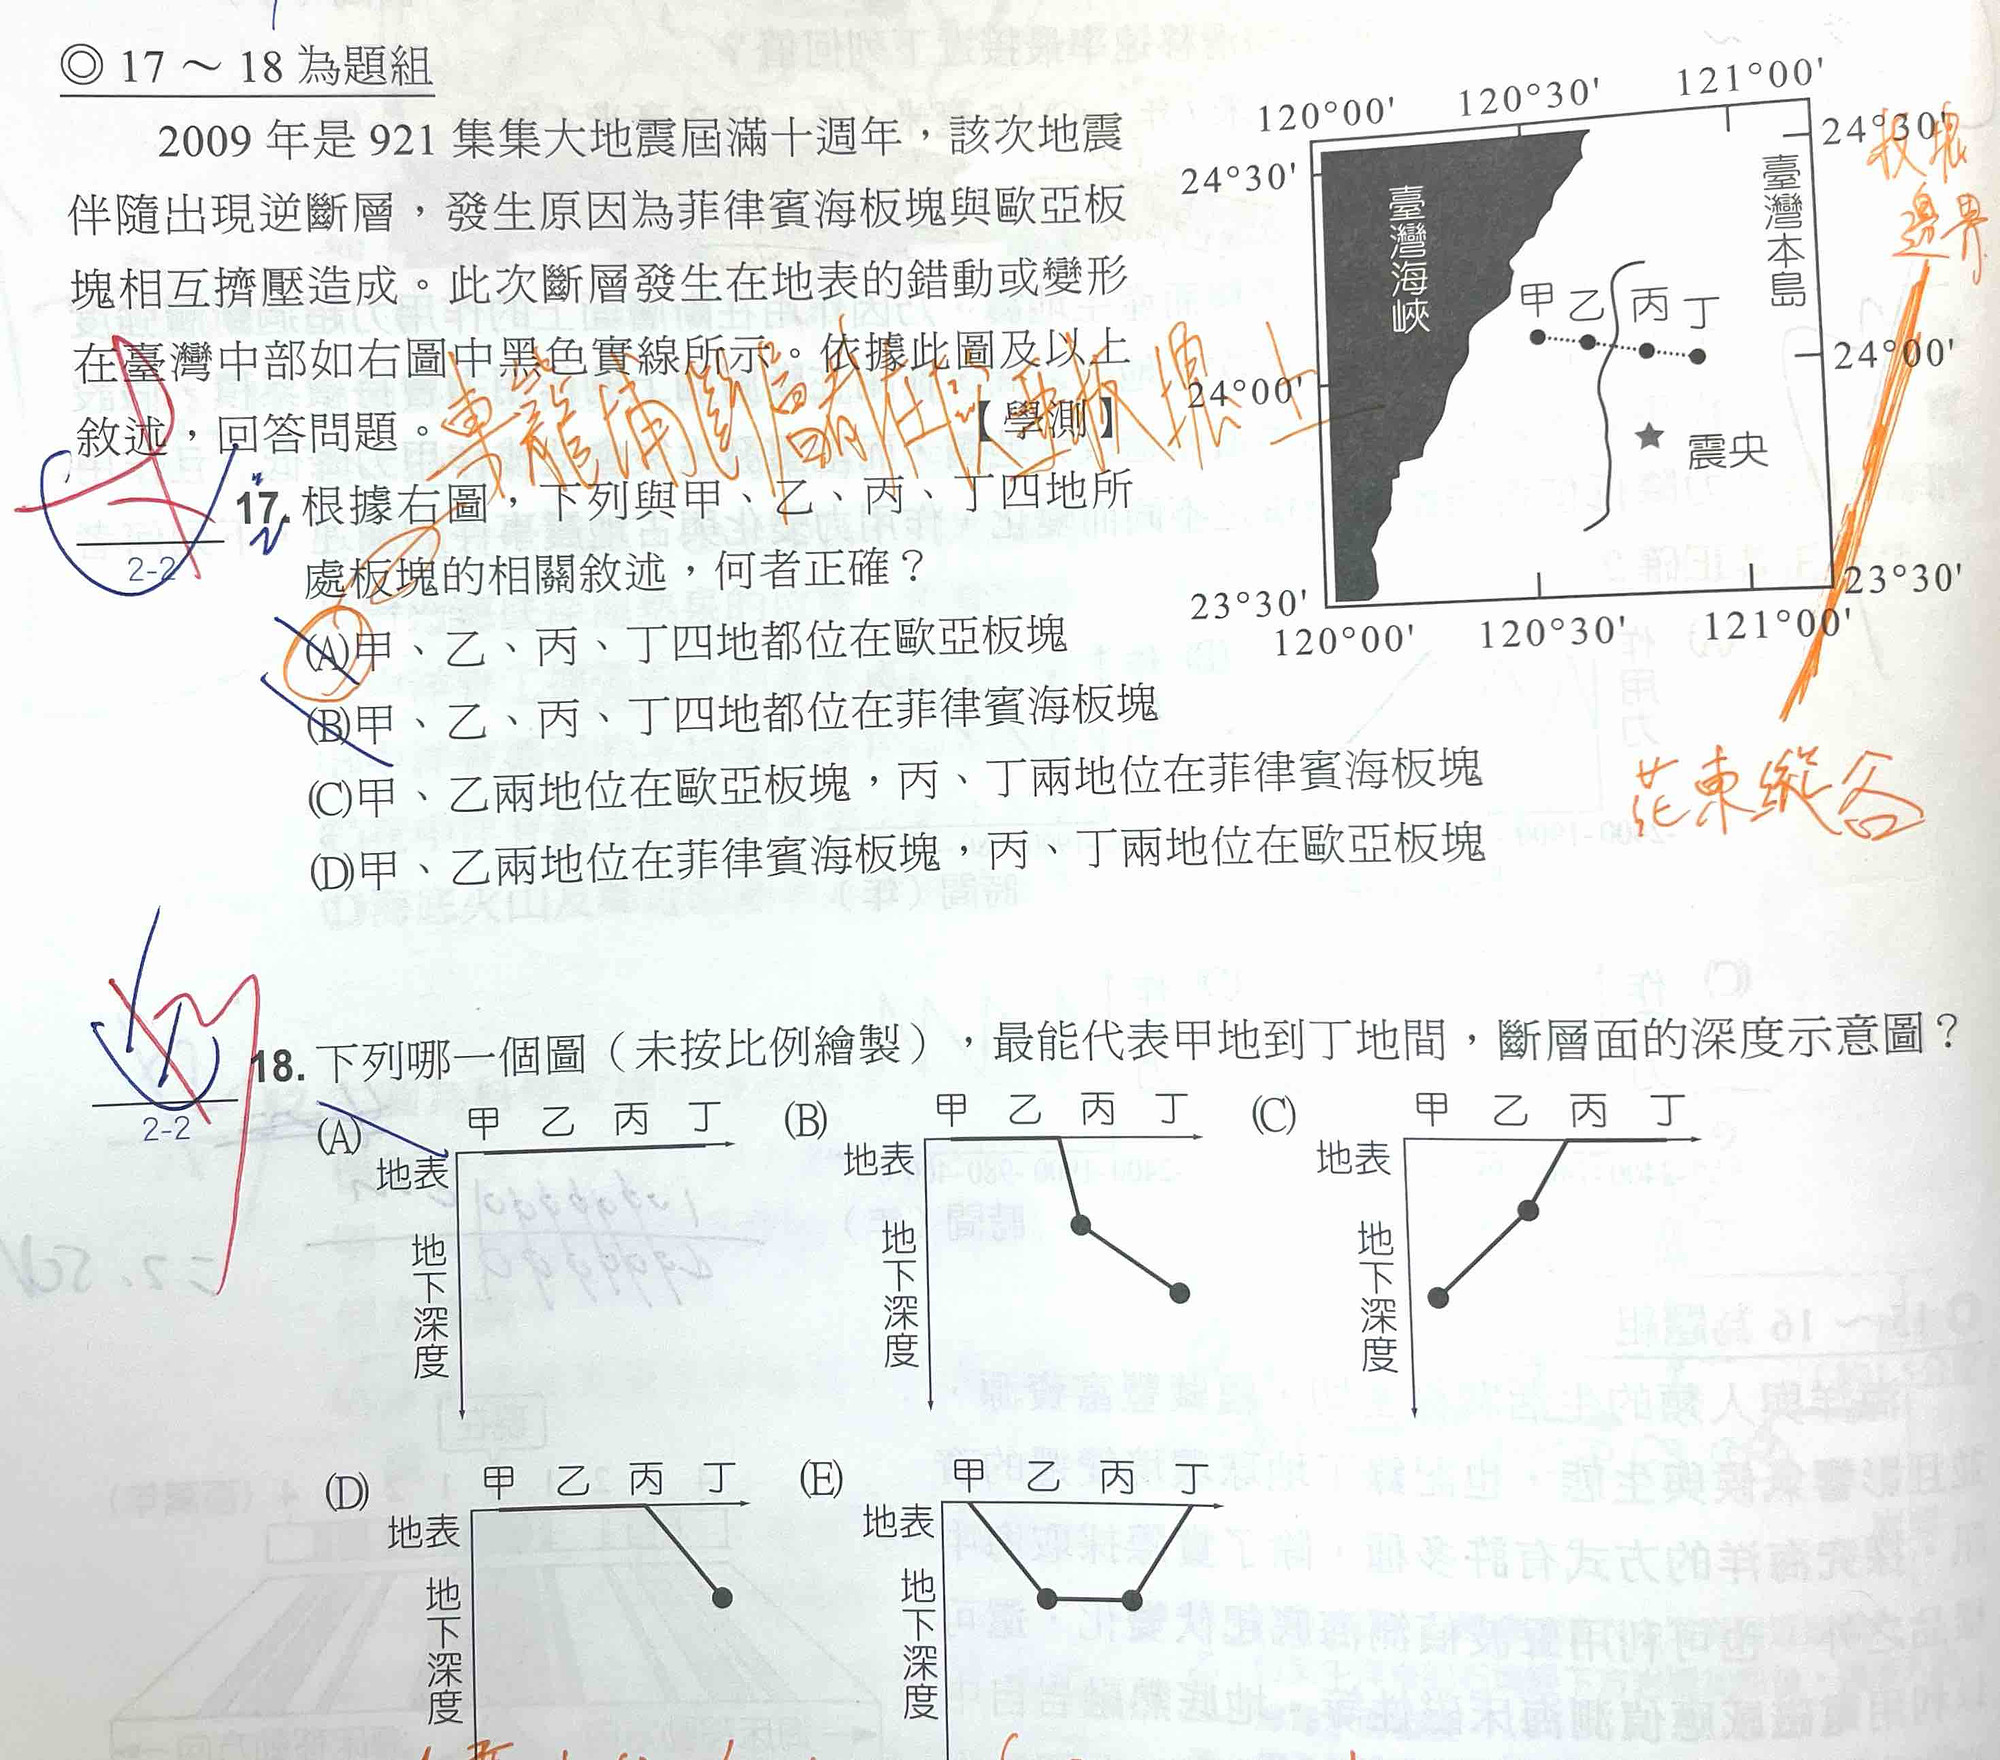 ◎ 17～18 為題組
2009 年是 921 集集大地震屆滿十週年，該次地震
伴隨出現逆斷層，發生原因為菲律賓海板塊與歐亞板
塊相互擠壓造成。此次斷層發生在地表的錯動或變形
在臺灣中部如右圖中黑色實線所示。依據此圖及以上
敘述，回答問題。【學測】
車籠埔斷層都在歐亞板塊上
120°00' 120°30' 121°00'
24°30' 24°30'
臺灣海峽
臺灣本島
甲 乙 丙 丁
24°00' 24°00'
震央
23°30' 23°30'
120°00' 120°30' 121°00'
板塊
邊界
花東縱谷
2-2
17. 根據右圖，下列與甲、乙、丙、丁四地所
處板塊的相關敘述，何者正確？
(A)甲、乙、丙、丁四地都位在歐亞板塊
(B)甲、乙、丙、丁四地都位在菲律賓海板塊
(C)甲、乙兩地位在歐亞板塊，丙、丁兩地位在菲律賓海板塊
(D)甲、乙兩地位在菲律賓海板塊，丙、丁兩地位在歐亞板塊
2-2
18. 下列哪一個圖（未按比例繪製），最能代表甲地到丁地間，斷層面的深度示意圖？
(A) 甲 乙 丙 丁
地表
地下深度
(B) 甲 乙 丙 丁
地表
地下深度
(C) 甲 乙 丙 丁
地表
地下深度
(D) 甲 乙 丙 丁
地表
地下深度
(E) 甲 乙 丙 丁
地表
地下深度